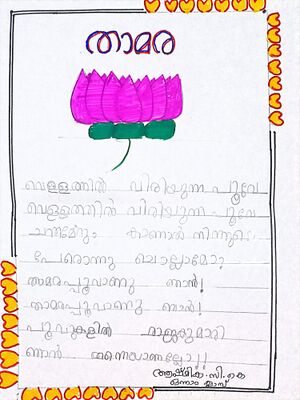 താമര
വെള്ളത്തിൽ വിരിയുന്ന പൂവേ
വെള്ളത്തിൽ വിരിയുന്ന പൂവേ
ചന്തമേറും കാണാൻ നിന്നുടെ
പേരൊന്നു ചൊല്ലാമോ?
താമരപ്പൂവാണു ഞാൻ!
താമരപ്പൂവാണു ഞാൻ!
പൂവുകളിൽ രാജകുമാരി
ഞാൻ തന്നെയാണല്ലോ!!
ആഷ്മിക. സി. കെ
ഒന്നാം ക്ലാസ്